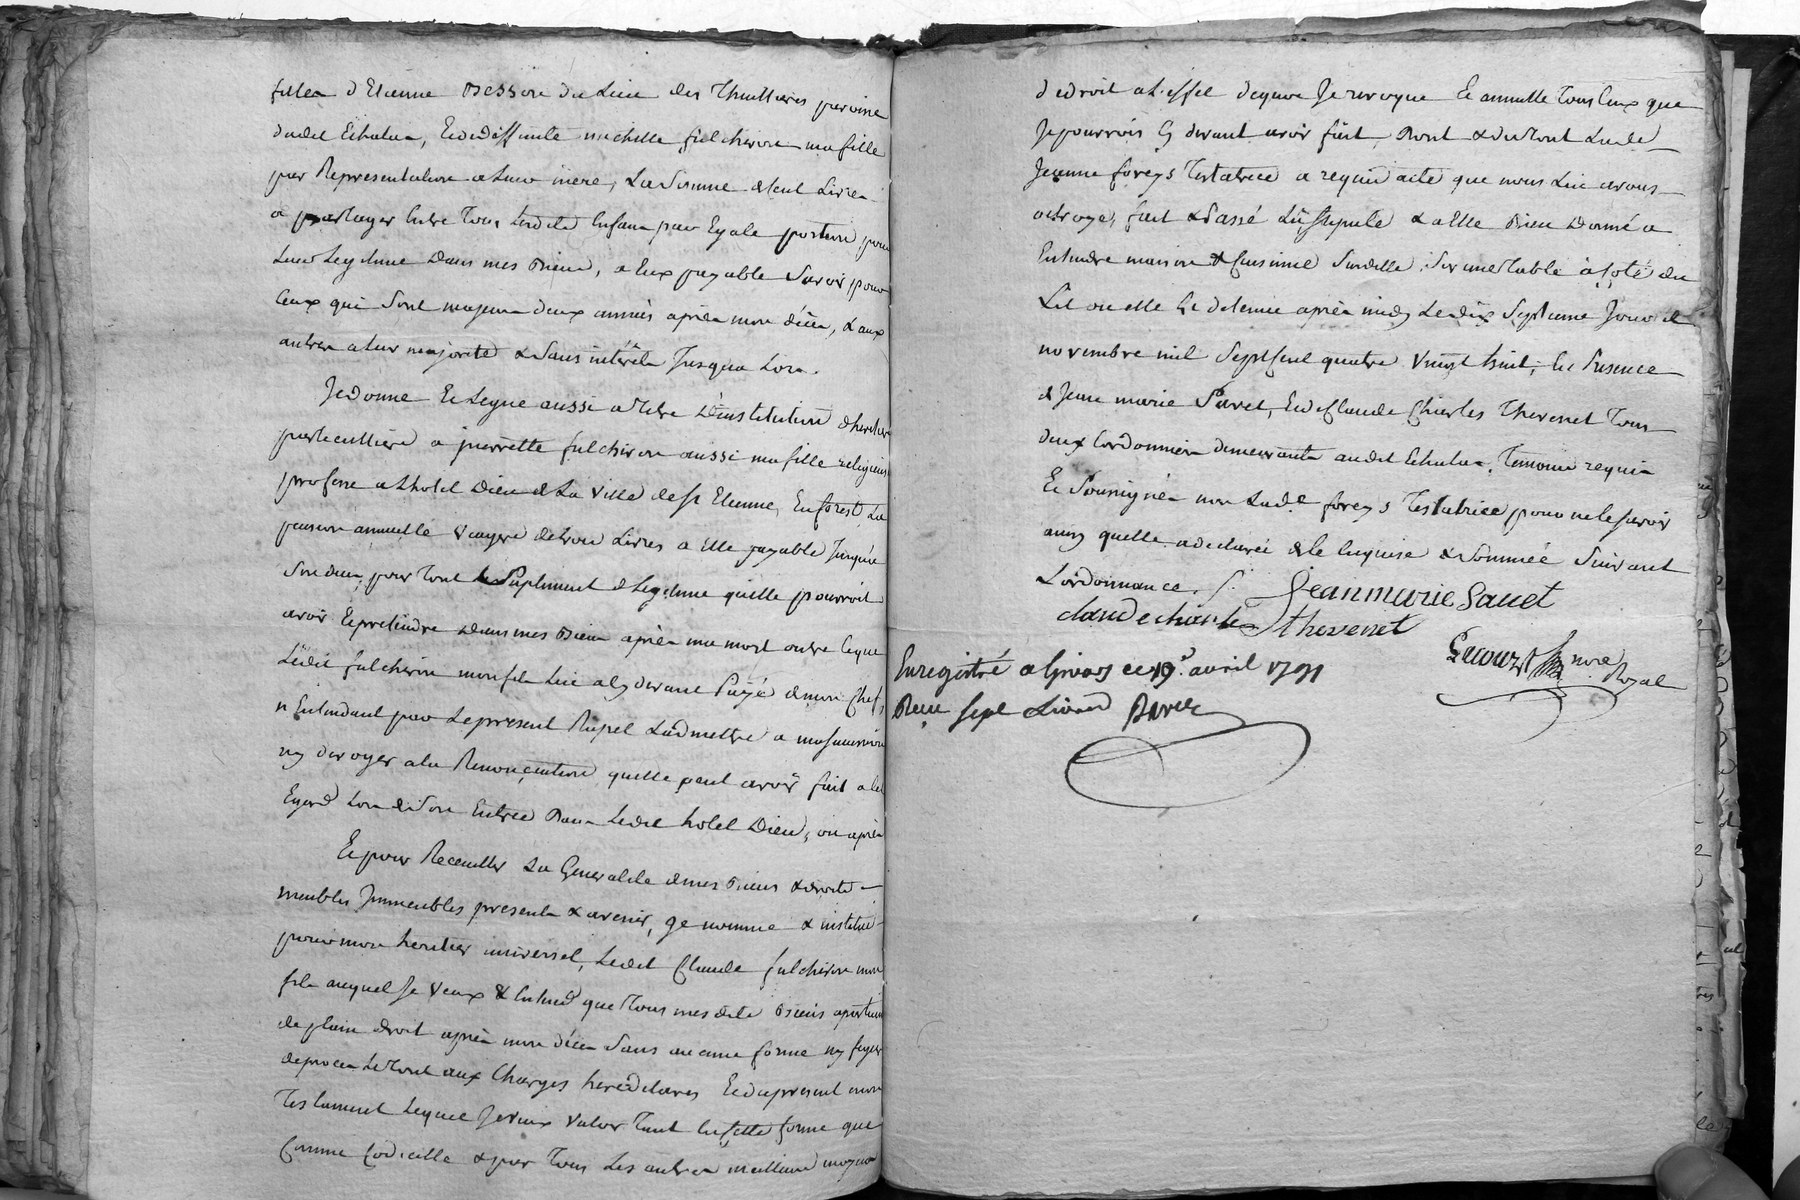 filles d'Etienne Besson du Lieu des Thuillieres paroisse
dudit Echalas, Et de deffunte michelle fulchiron ma fille
par Representation a Leur mere, La Somme de cent Livres
a partager Entre Tous Lesdits Enfans par Egale portion, pour
Leur Legitime Dans mes Biens, a Eux payable Savoir pour
Ceux qui Sont majeurs deux années après mon décès, & aux
autres a leur majorité & Sans intérêts Jusqua Lors.
Je donne Et Legue aussi a Titre D'institution d'heritiere
particulliere a pierrette fulchiron aussi ma fille religieuse
professe a Lhotel Dieu de La Ville de St Etienne, En forest, La
pension annuelle Viagere de trois Livres a Elle payable Jusqu'a
Son deces, pour Tout Supliment de Legitime qu'elle pourroit
avoir Et pretendre Dans mes Biens après ma mort outre Ce que
Ledit fulchiron mon fils Lui a Cy devant Payé de mon Chef,
n'Entendant par Le present Rapel L'admettre a ma succession
ny deroger a La Renonciation quelle peut avoir fait a cet
Egard Lors de Son Entrée Dans Ledit hotel Dieu, ou après
Et pour Receuillir La Generalité de mes Biens & droits
meubles Jmmeubles presents & avenir, Je nomme & institue
pour mon heritier universel, Ledit Claude fulchiron mon
fils auquel Je Veux & Entend que Tous mesdits Biens apartiennent
de plein droit après mon décès Sans aucune forme ny figure
de procès Le Tout aux Charges hereditaires Et du present mon
Testament Lequel Je veux valoir Tant En cette forme que
Comme Codicille & par Tous Les autres meilleurs moyens
de droit a L'effet de quoi Je revoque Et annulle Tous Ceux que
Je pourrois Cy devant avoir fait, Dont & du Tout Lade
Jeanne foreys Testatrice a requis acte que nous Lui avons
octroyé, fait & Passé Lû, Stipulé & a Elle Bien Donné a
Entendre maison & Cuisine Sur Table à Coté du
Lit ou elle Est detenue après midy Le dix Septieme Jour de
novembre mil Sept Cent quatre Vingt huit, En Presence
de Jean marie Savet, Et de Claude Charles Thevenet Tous
deux Cordonniers demeurants audit Echalas, Temoins requis
Et Soussignés non Lade foreys Testatrice pour ne le Savoir
ainsy quelle a declaré de Ce Enquise & Sommée Suivant
L'ordonnance.
Jean marie Savet
claude charle thevenet
nore Royal
Enregistré a Givors ce 19 avril 1791
Reçu sept Livres